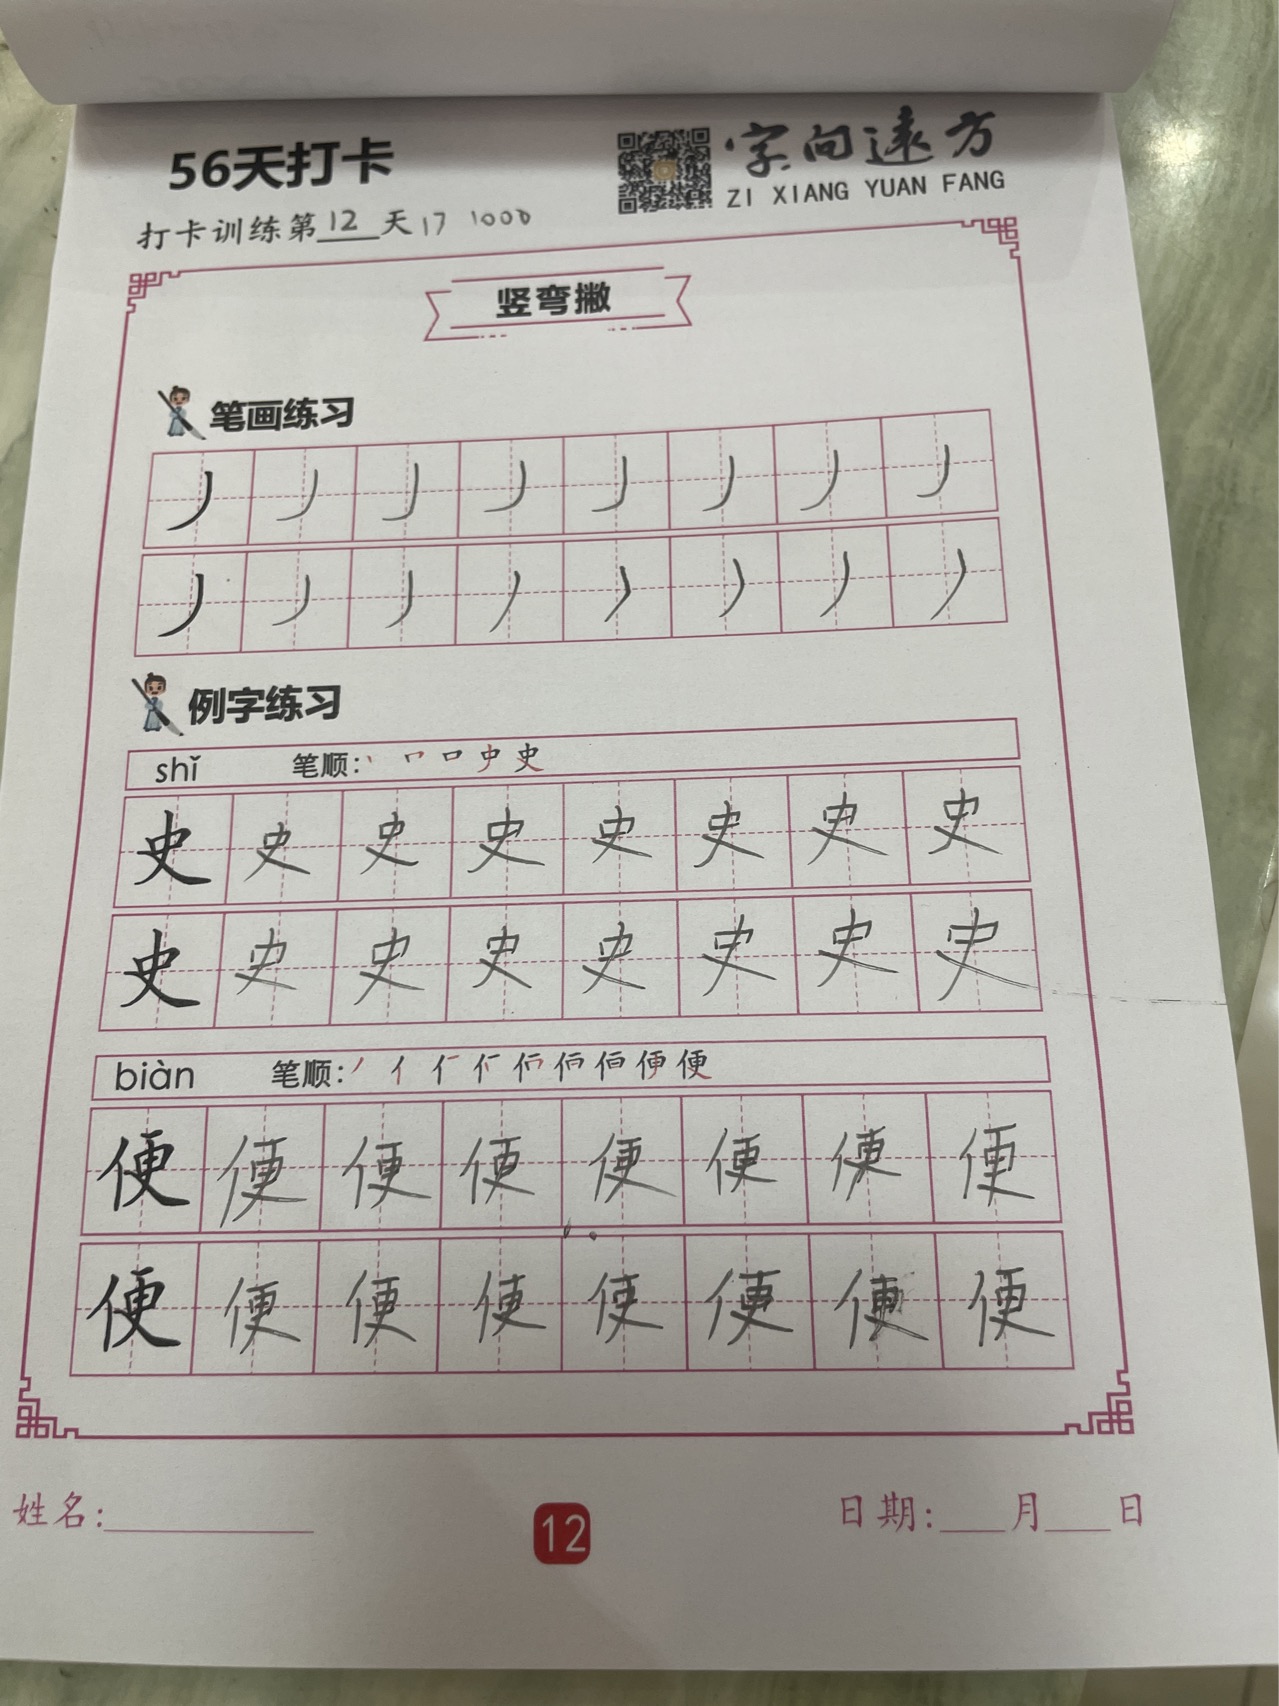 56天打卡
字向遠方
ZI XIANG YUAN FANG
打卡训练第12天 17 1000
竖弯撇
笔画练习
丿丿丿丿丿丿丿丿
丿丿丿丿丿丿丿丿
例字练习
shǐ 笔顺: 丶 口 史
史史史史史史史史
史史史史史史史史
biàn 笔顺: 丿 亻 便
便便便便便便便便
便便便便便便便便
姓名:
12
日期: 月 日